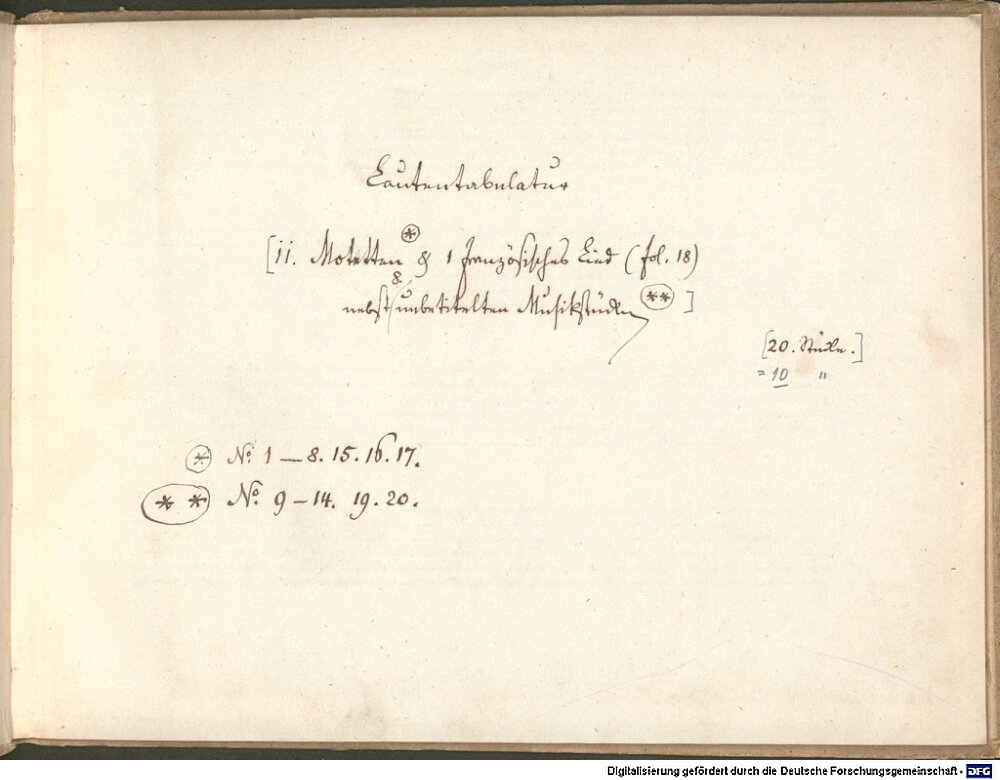 Lautentabulatur
[11. Motetten ⊛ & 1 französisches Lied (fol. 18)
8
nebst unbetitelten Musikstücken (**) ]
[20. Stücke.]
= 10 "
⊛ No. 1 — 8. 15. 16. 17.
(* *) No. 9 – 14. 19. 20.
Digitalisierung gefördert durch die Deutsche Forschungsgemeinschaft - DFG